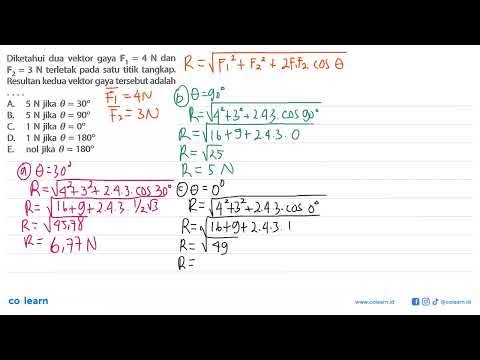 Diketahui dua vektor gaya F₁ = 4 N dan
F₂ = 3 N terletak pada satu titik tangkap.
Resultan kedua vektor gaya tersebut adalah
. . . .
A. 5 N jika θ = 30°
B. 5 N jika θ = 90°
C. 1 N jika θ = 0°
D. 1 N jika θ = 180°
E. nol jika θ = 180°
F₁ = 4N
F₂ = 3N
R = √F₁² + F₂² + 2F₁F₂ cos θ
ⓐ θ = 30°
R = √4² + 3² + 2.4.3. cos 30°
R = √16 + 9 + 2.4.3. 1/2√3
R = √45,78
R = 6,77 N
ⓑ θ = 90°
R = √4² + 3² + 2.4.3. cos 90°
R = √16 + 9 + 2.4.3. 0
R = √25
R = 5 N
ⓒ θ = 0°
R = √4² + 3² + 2.4.3. cos 0°
R = √16 + 9 + 2.4.3. 1
R = √49
R =
co learn
www.colearn.id
@colearn.id